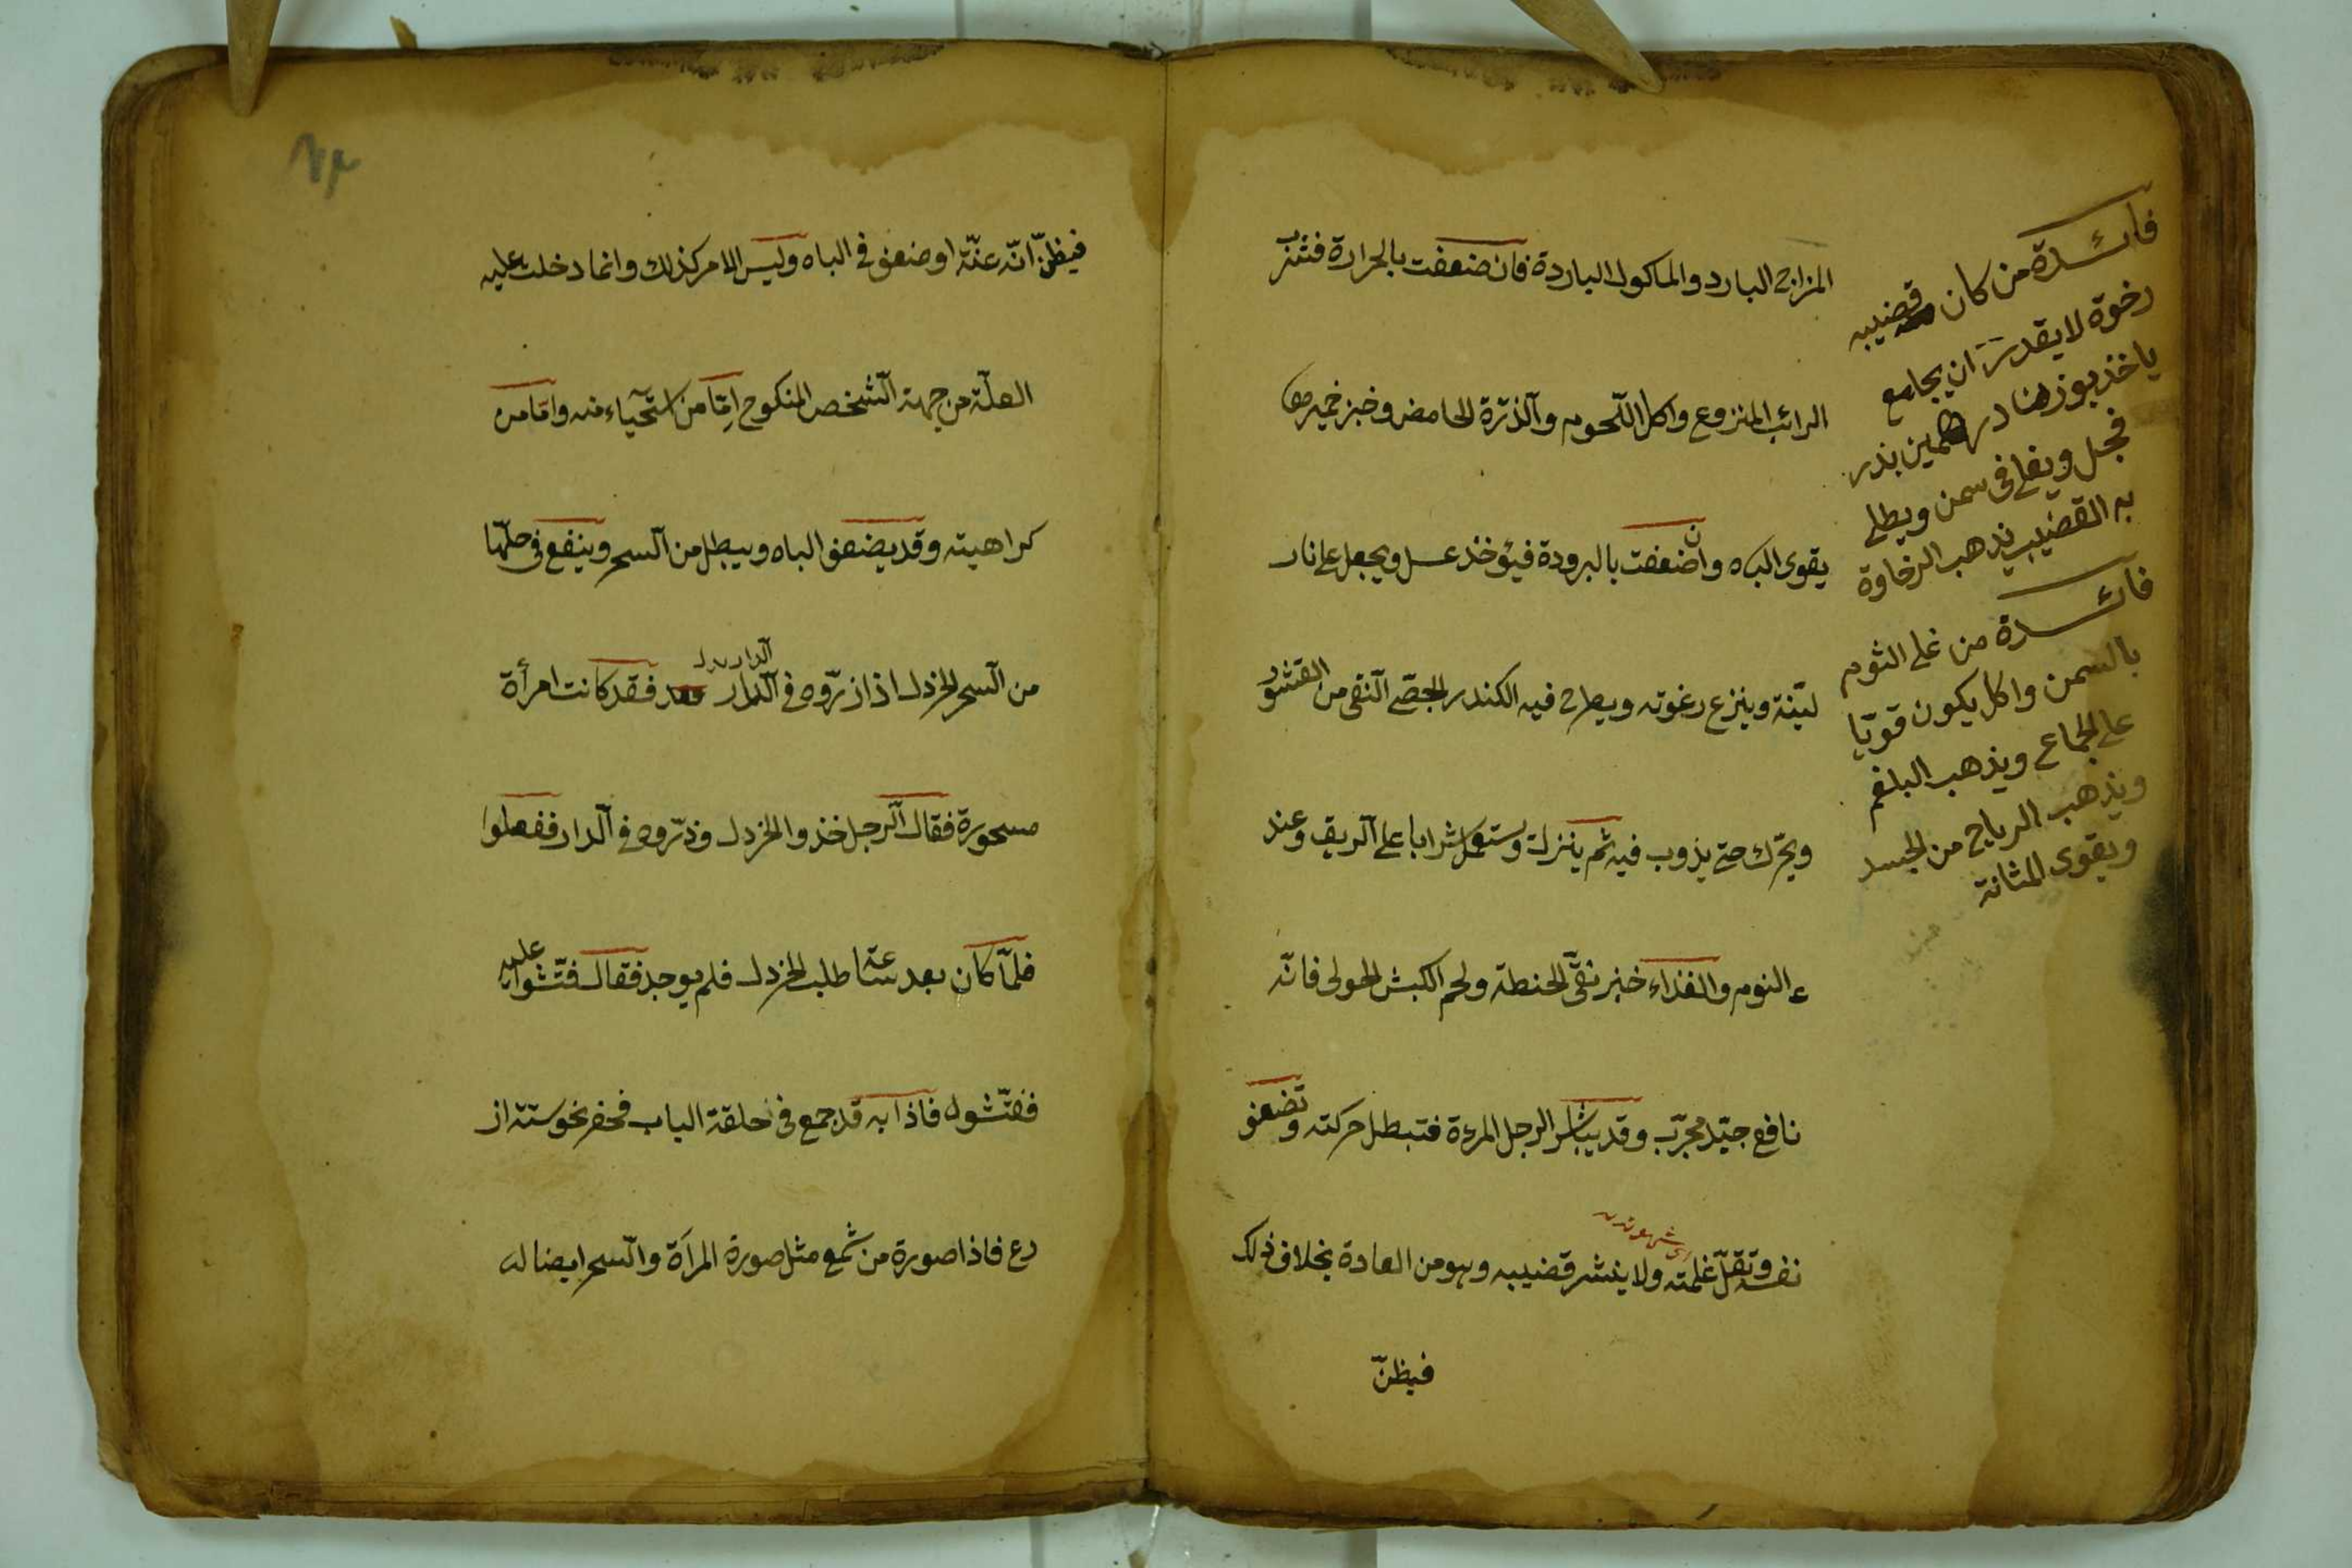 المزاج البارد والماكول الباردة فان ضعفت بالحرارة فتشرب
الرائب المنزوع واكل اللّحوم والذرة الحامض وخبز خميرها
يقوى الباه وان ضعفت بالبرودة فيؤخذ عسل ويجعل على نار
ليّنة وينزع رغوته ويطرح فيه الكندر الجصّى النقى من القشور
ويحرّك حتى يذوب فيه ثم ينزلـه ويستعمل شرابا على الريق وعند
ء النوم والغذاء خبز نقىّ الحنطة ولحم الكبش الحولى فانّه
نافع جيّد مجرّب وقد يباشر الرجل المرءة فتبطل حركته وتضعف
اى شهوته
نفسه وتقلّ غلمته ولا ينشر قضيبه وهو من العادة بخلاف ذلك
فيظنّ
فائدة من كان قضيبه
رخوة لا يقدر ان يجامع
ياخذ بوزهنا درهمين بذر
فجل ويغلى فى سمن ويطلى
به القضيب يذهب الرخاوة
فائدة من غلى الثوم
بالسمن واكل يكون قويّا
على الجماع ويذهب البلغم
ويذهب الرياح من الجسد
ويقوى المثانة
فيظنّ انّه عنّة او ضعف فى الباه وليس الامر كذلك وانما دخلت عليه
العلّة من جهة الشخص المنكوح امّا من استحياء منه وامّا من
كراهيته وقد يضعف الباه ويبطل من السحر وينفع فى حلّها
من السحر الخردل اذا ذرّوه فى الدار فقد كانت امرأة
مسحورة فقال الرجل خذوا الخردل وذرّوه فى الدار ففعلوا
فلمّا كان بعد ساعة طلب الخردل فلم يوجد فقال فتّشوا عليه
ففتّشوا فاذا به قد جمع فى حلقة الباب فحفر نحو ستة اذ
رع فاذا صورة من شمع مثل صورة المرأة والسحر ايضا له